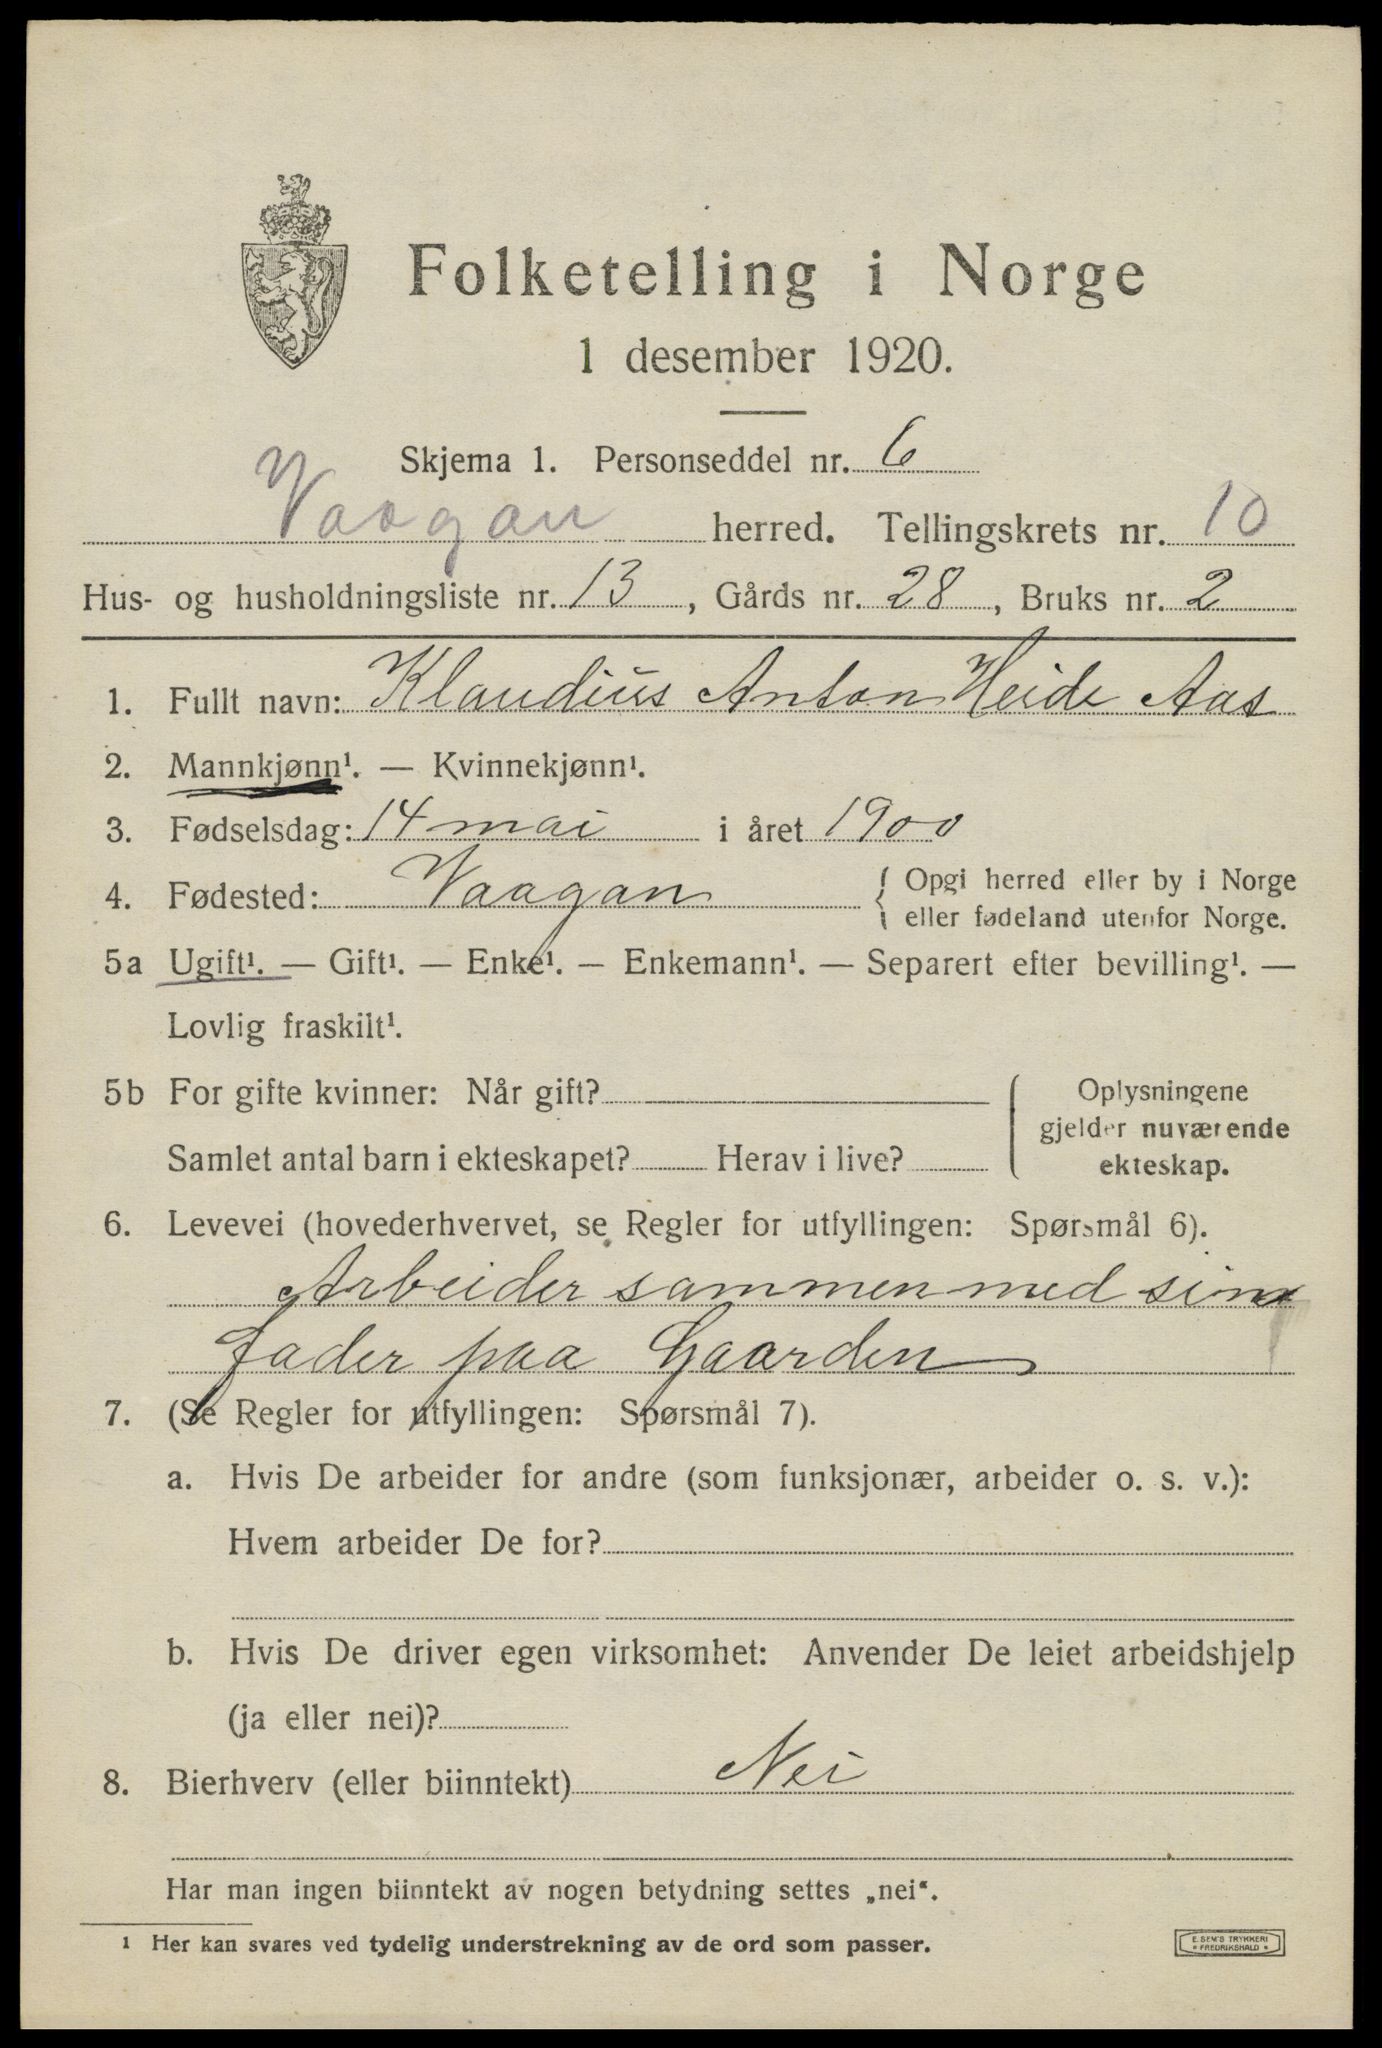 Folketelling i Norge
1 desember 1920.
Skjema 1. Personseddel nr. 6
Vaagan herred. Tellingskrets nr. 10
Hus- og husholdningsliste nr. 13, Gårds nr. 28, Bruks nr. 2
1. Fullt navn: Klaudius Anton Heide Aas
2. Mannkjønn¹. — Kvinnekjønn¹.
3. Fødselsdag: 14 mai i året 1900
4. Fødested: Vaagan { Opgi herred eller by i Norge
eller fødeland utenfor Norge.
5a Ugift¹. — Gift¹. — Enke¹. — Enkemann¹. — Separert efter bevilling¹. —
Lovlig fraskilt¹.
5b For gifte kvinner: Når gift?
Samlet antal barn i ekteskapet? Herav i live?
Oplysningene
gjelder nuværende
ekteskap.
6. Levevei (hovederhvervet, se Regler for utfyllingen: Spørsmål 6).
Arbeider sammen med sin
fader paa Gaarden
7. (Se Regler for utfyllingen: Spørsmål 7).
a. Hvis De arbeider for andre (som funksjonær, arbeider o. s. v.):
Hvem arbeider De for?
b. Hvis De driver egen virksomhet: Anvender De leiet arbeidshjelp
(ja eller nei)?
8. Bierhverv (eller biinntekt) Nei
Har man ingen biinntekt av nogen betydning settes „nei“.
¹ Her kan svares ved tydelig understrekning av de ord som passer.
E. SEM'S TRYKKERI
* FREDRIKSHALD *